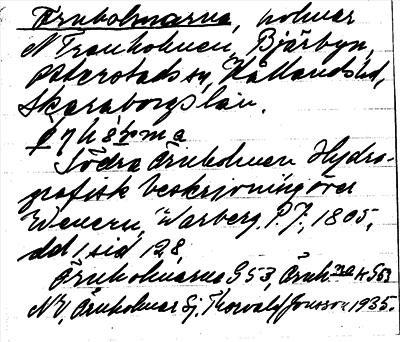 Örnholmarna, holmar
N Tranholmen, Bjärbyn,
Otterstads sn, Kållands hd,
Skaraborgs län.
Södra Örnholmen Hydro-
grafisk beskrivning över
Wenern, Warberg. P. J. 1805,
dd, sid 128
Örnholmarna G53, Örnh.na k G53
NV, Örnholmar Sj, Thorvald Jonsson 1935.